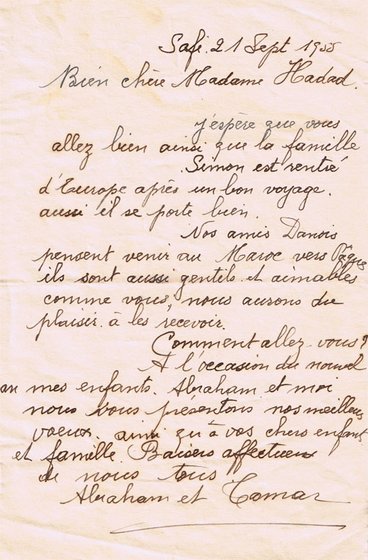 Safi. 21 Sept 1955
Bien chère Madame Hadad.
j'espère que vous
allez bien ainsi que la famille
Simon est rentré
d'Europe après un bon voyage.
aussi il se porte bien.
Nos amis Danois
pensent venir au Maroc vers Pâques
ils sont aussi gentils et aimables
comme vous, nous aurons du
plaisir à les recevoir.
Comment allez-vous?
A l'occasion du nouvel
an mes enfants. Abraham et moi
nous vous présentons nos meilleurs
voeux ainsi qu'à vos chers enfants
et famille. Baisers affectueux
de nous tous
Abraham et Tamar